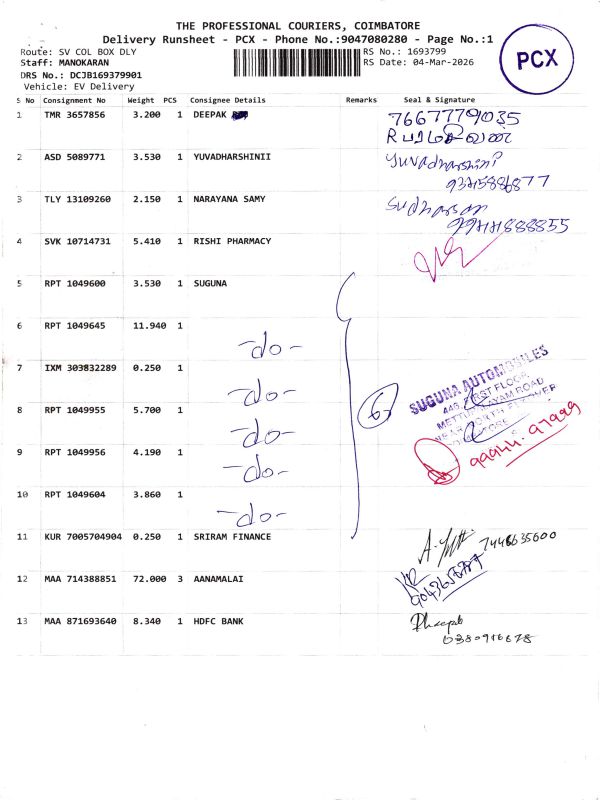 THE PROFESSIONAL COURIERS, COIMBATORE
Delivery Runsheet - PCX - Phone No.:9047080280 - Page No.:1
Route: SV COL BOX DLY
RS No.: 1693799
Staff: MANOKARAN
RS Date: 04-Mar-2026
DRS No.: DCJB169379901
Vehicle: EV Delivery
PCX
S No Consignment No Weight PCS Consignee Details Remarks Seal & Signature
1 TMR 3657856 3.200 1 DEEPAK 7667779035
R பரமசிவன்
2 ASD 5089771 3.530 1 YUVADHARSHINII Yuvadharshini
3 TLY 13109260 2.150 1 NARAYANA SAMY Sudharsan
4 SVK 10714731 5.410 1 RISHI PHARMACY
5 RPT 1049600 3.530 1 SUGUNA
6 RPT 1049645 11.940 1 -do-
7 IXM 303832289 0.250 1 -do-
8 RPT 1049955 5.700 1 -do-
9 RPT 1049956 4.190 1 -do-
10 RPT 1049604 3.860 1 -do-
6
SUGUNA AUTOMOBILES
445, FIRST FLOOR,
METTUPALAYAM ROAD
99944-97999
11 KUR 7005704904 0.250 1 SRIRAM FINANCE
12 MAA 714388851 72.000 3 AANAMALAI
13 MAA 871693640 8.340 1 HDFC BANK